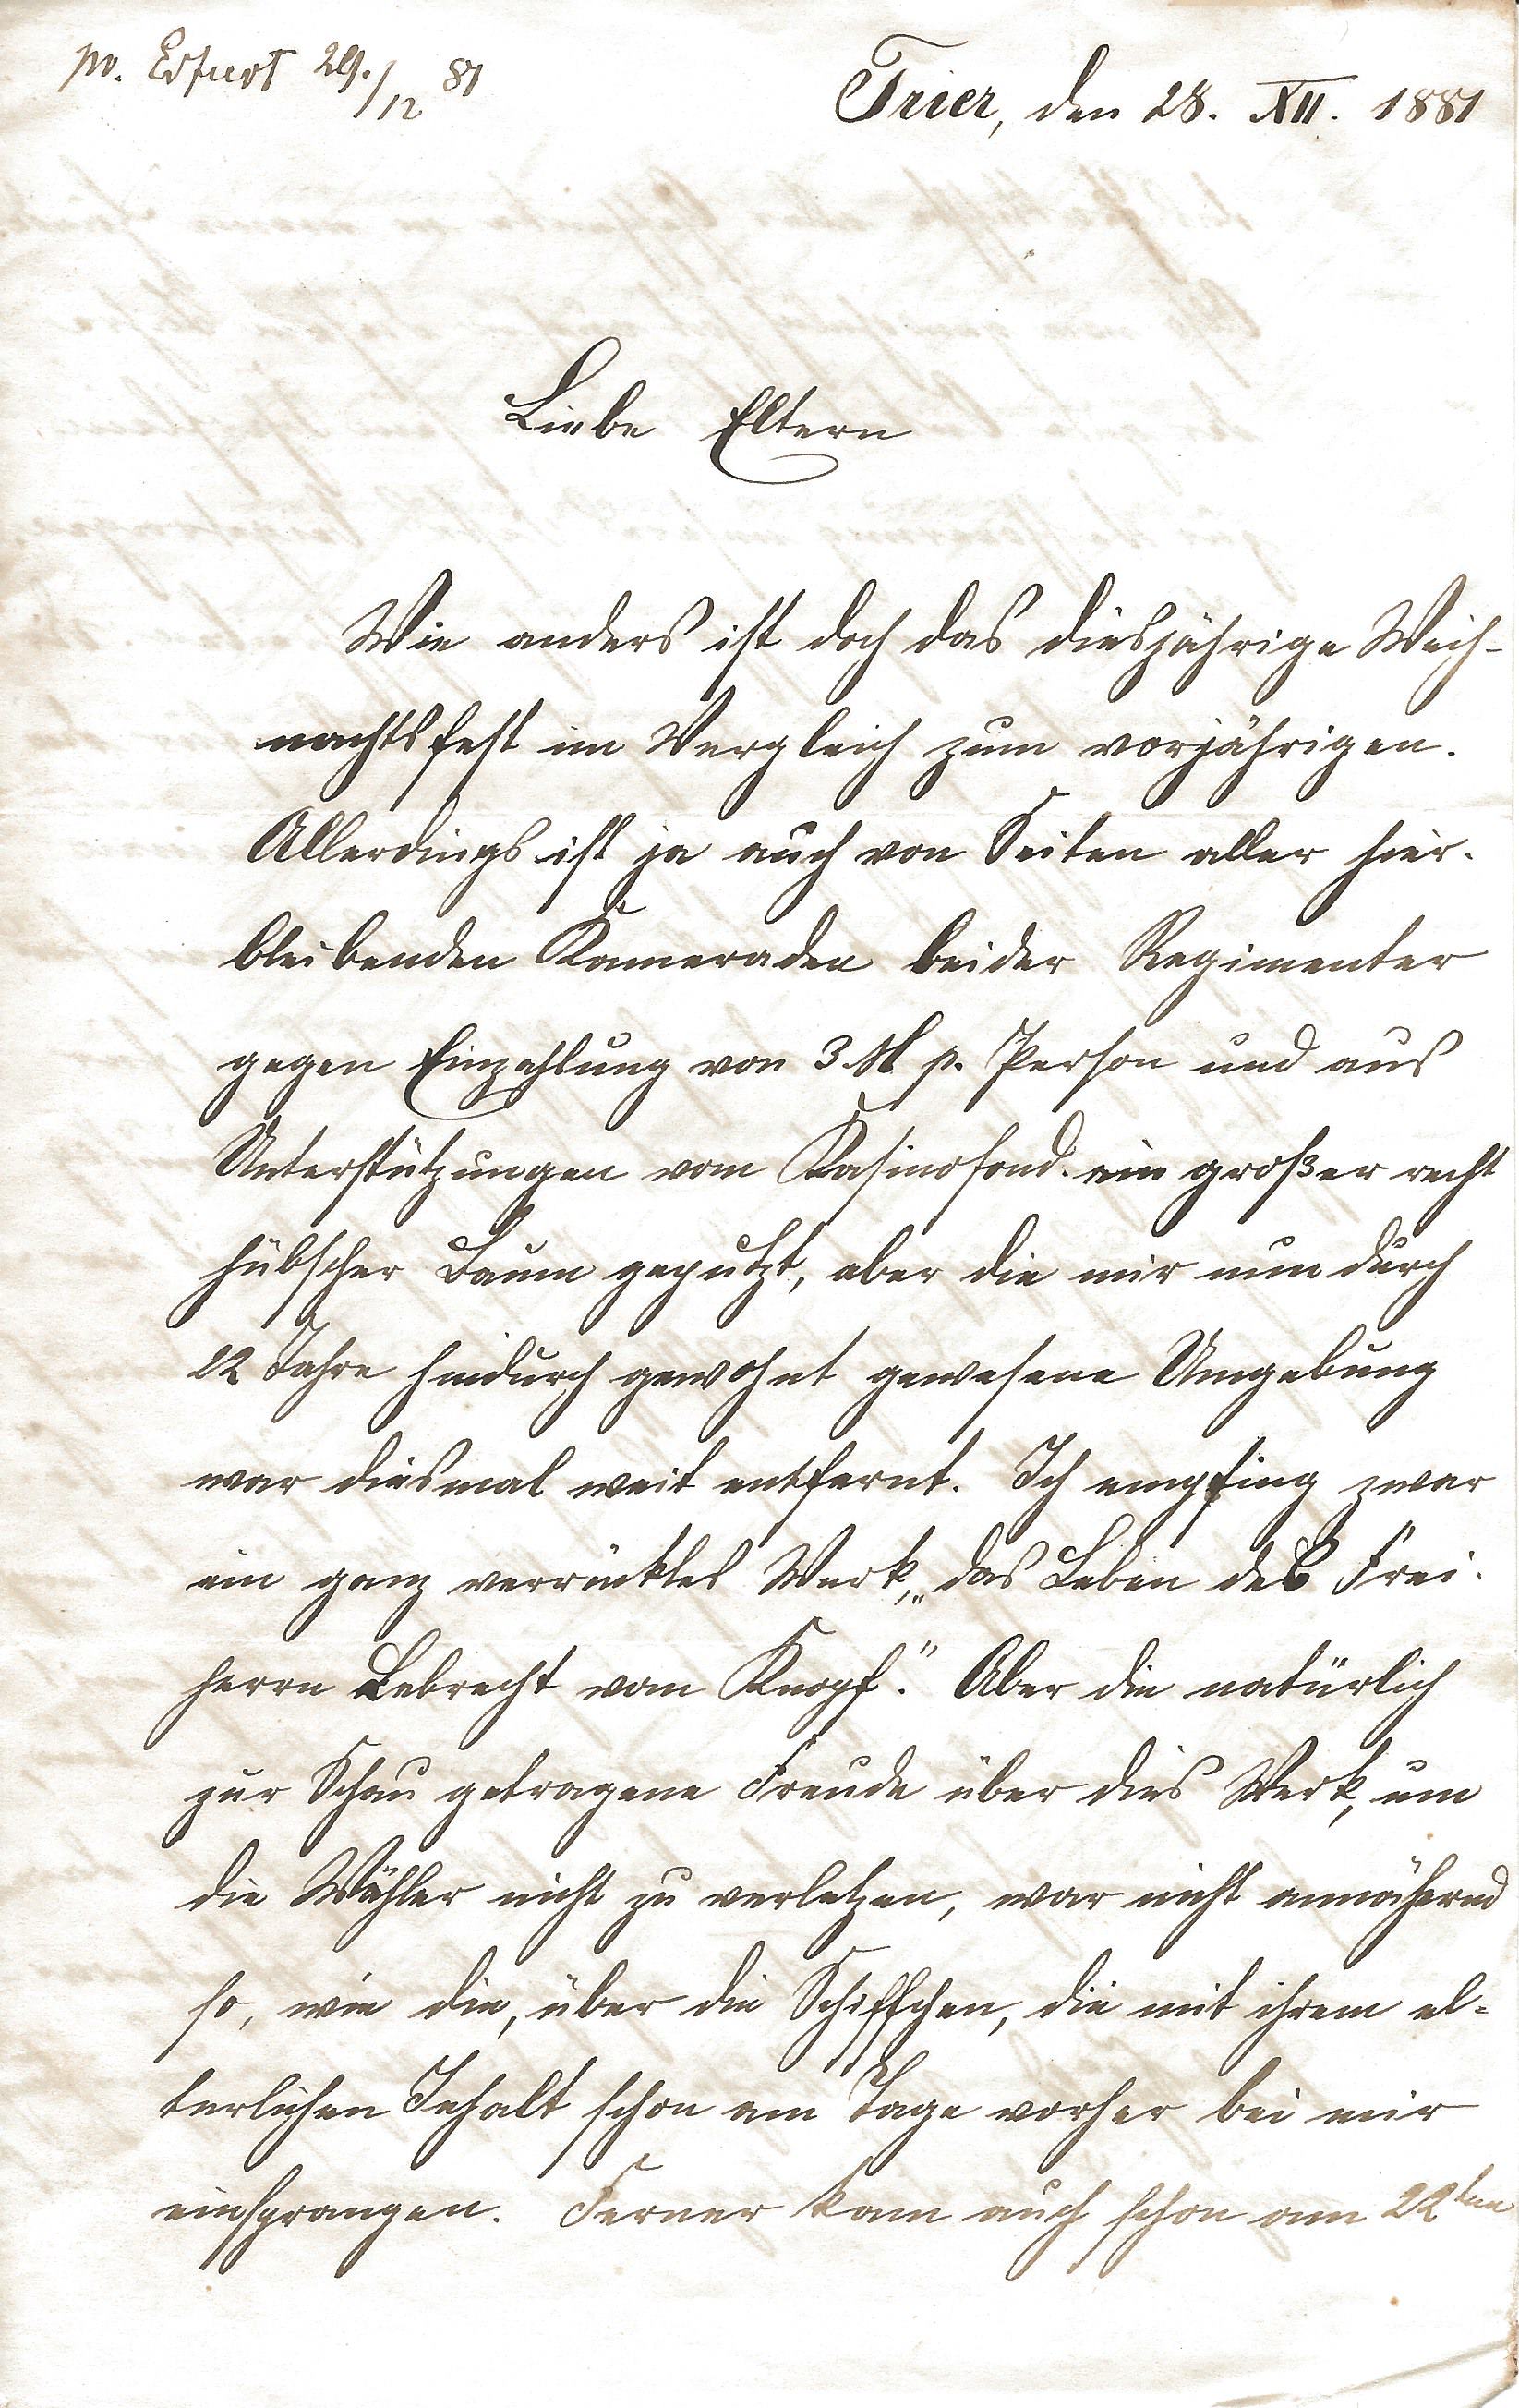 pr. Erfurt 29./12 81
Trier, den 28. XII. 1881
Liebe Eltern
Wie anders ist doch das diesjährige Weih-
nachtsfest im Vergleich zum vorjährigen.
Allerdings ist ja auch von Seiten aller hier-
bleibenden Kameraden beider Regimenter
gegen Einzahlung von 3 M p. Person und aus
Unterstützungen vom Kasinofond. ein großer recht
hübscher Baum geputzt, aber die mir nun durch
22 Jahre hindurch gewohnt gewesene Umgebung
war diesmal weit entfernt. Ich empfing zwar
ein ganz verrücktes Werk, „das Leben des Frei-
herrn Lebrecht vom Knopf." Aber die natürlich
zur Schau getragene Freude über dies Werk, um
die Wähler nicht zu verletzen, war nicht annähernd
so, wie die, über die Schiffchen, die mit ihrem el-
terlichen Inhalt schon am Tage vorher bei mir
einsprangen. Ferner kam auch schon am 22ten